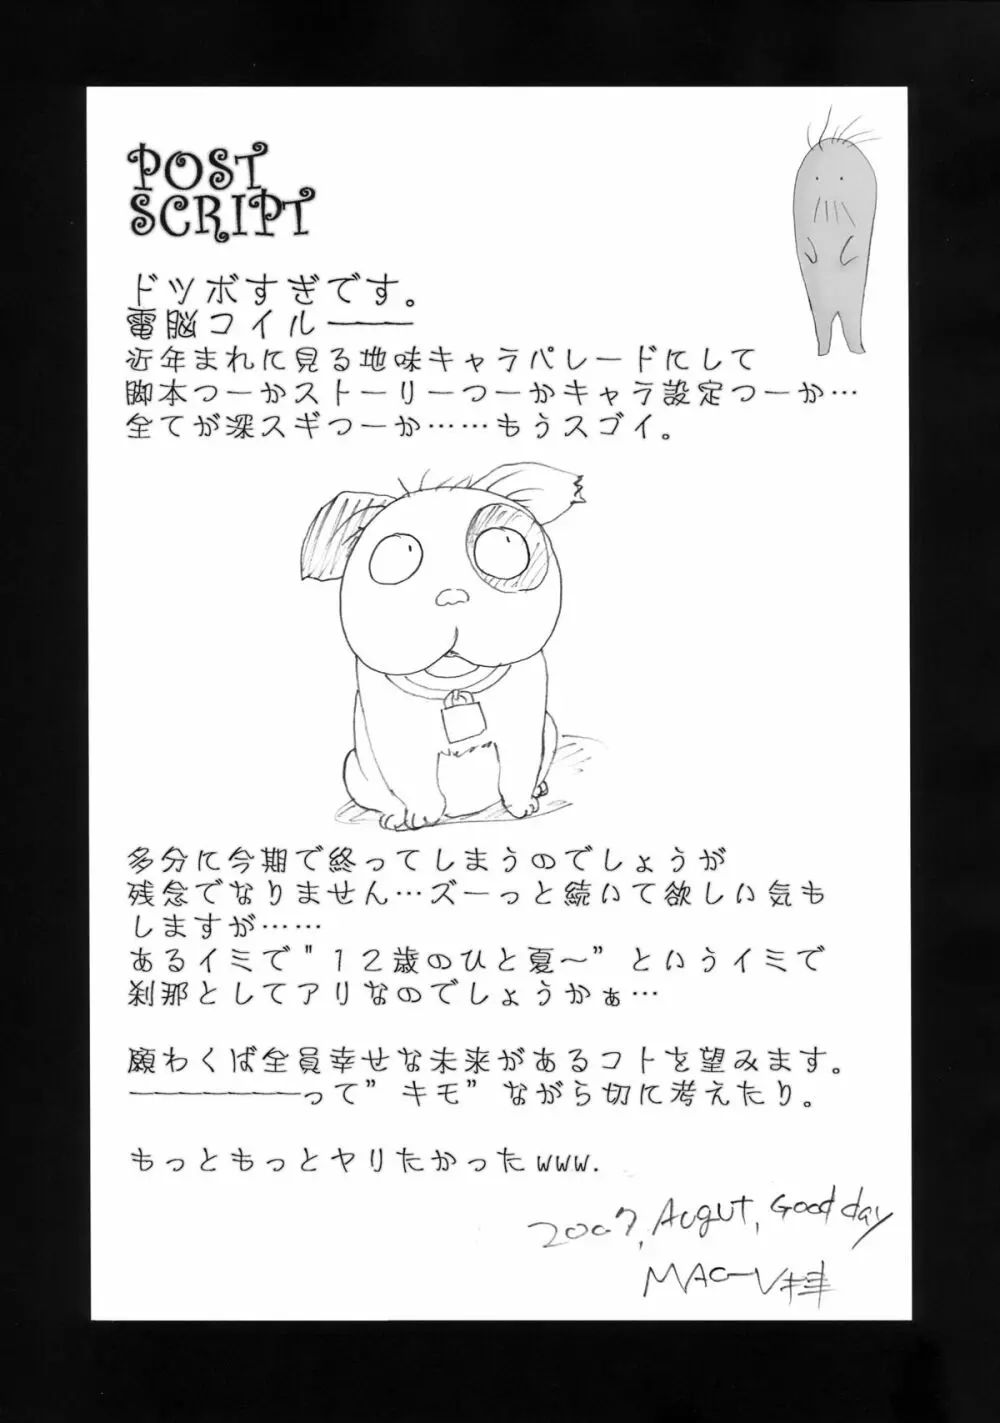 POST
SCRIPT
ドツボすぎです。
電脳コイル———
近年まれに見る地味キャラパレードにして
脚本つーかストーリーつーかキャラ設定つーか…
全てが深スギつーか……もうスゴイ。
多分に今期で終ってしまうのでしょうが
残念でなりません…ズーっと続いて欲しい気も
しますが……
あるイミで"12歳のひと夏～"というイミで
刹那としてアリなのでしょうかぁ…
願わくば全員幸せな未来があるコトを望みます。
———————って"キモ"ながら切に考えたり。
もっともっとヤリたかったwww.
2007, Augut, Good day
MAC-V拝